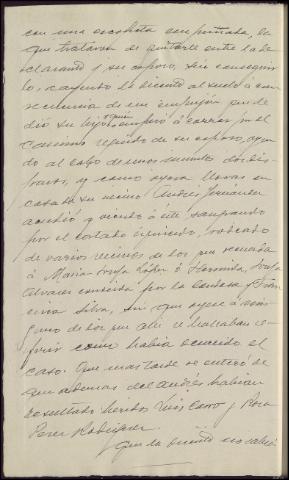 con una escopeta empuñada, la
que trataron de quitarle entre la de
clarante y su esposo, sin conseguir
lo, cayendo la dicente al suelo á con
secuencia de un empujon que le
dió su hijo quien empezó á correr por el
camino seguido de su esposo, oyen
do al cabo de unos minutos dos dis
paros, y como oyera llorar en
casa de su vecino Andrés Fernández
acudió y viendo á éste sangrando
por el costado izquierdo, rodeado
de varios vecinos de los que recuerda
á María Josefa López á Herminda Souto
Alvarez conocida por la Condesa y Fran
cisca Silva, sin que oyera á nin
guno de los que allí se hallaban re
ferir como había ocurrido el
caso. Que mas tarde se enteró de
que ademas del Andrés habian
resultado heridos Luis Carro y Rosa
Perez Rodriguez.
Que la dicente no sabia